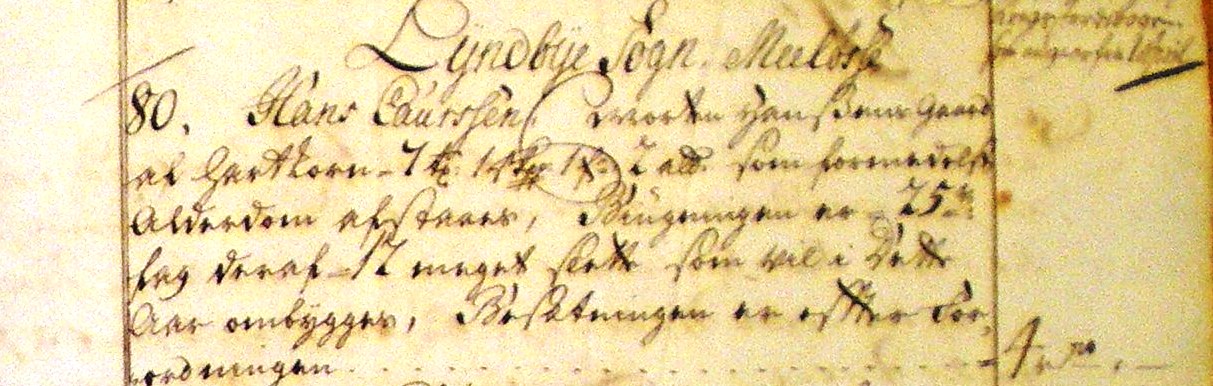 Lyndbÿe Sogn. Meelbÿe
80. Hans Laurssen Morten Hanßens Gaard
af Hartkorn - 7 td. 1 2 alb. som formedelst
Alderdom afstaaes, Bÿgningen er - 25
fag deraf - 12 meget slette som vil i Dette
Aar ombygges, Besætningen er effter For-
ordningen. - 4 rdr. -